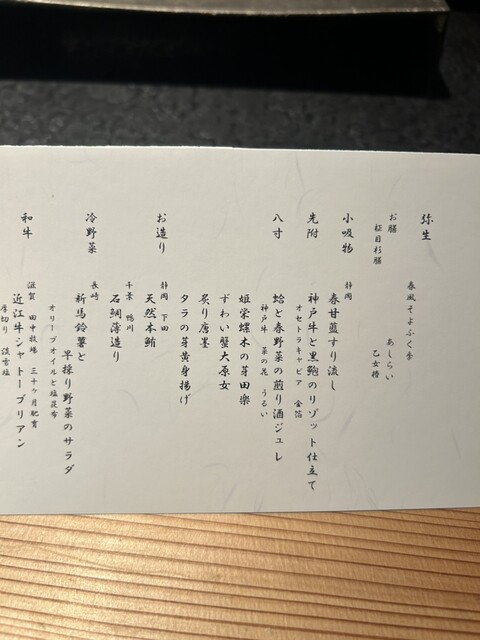 弥生
春風そよふく季
お膳
柾目杉膳
あしらい
乙女椿
小吸物
静岡
春甘藍すり流し
先附
神戸牛と黒鮑のリゾット仕立て
オセトラキャビア 金箔
八寸
蛤と春野菜の煎り酒ジュレ
神戸牛 菜の花 うるい
姫栄螺木の芽田楽
ずわい蟹大原女
炙り唐墨
タラの芽黄身揚げ
お造り
静岡 下田
天然本鮪
千葉 鴨川
石鯛薄造り
冷野菜
長崎
新馬鈴薯と
早採り野菜のサラダ
オリーブオイルと塩昆布
和牛
滋賀 田中牧場 三十ヶ月肥育
近江牛シャトーブリアン
厚切り 淡雪塩